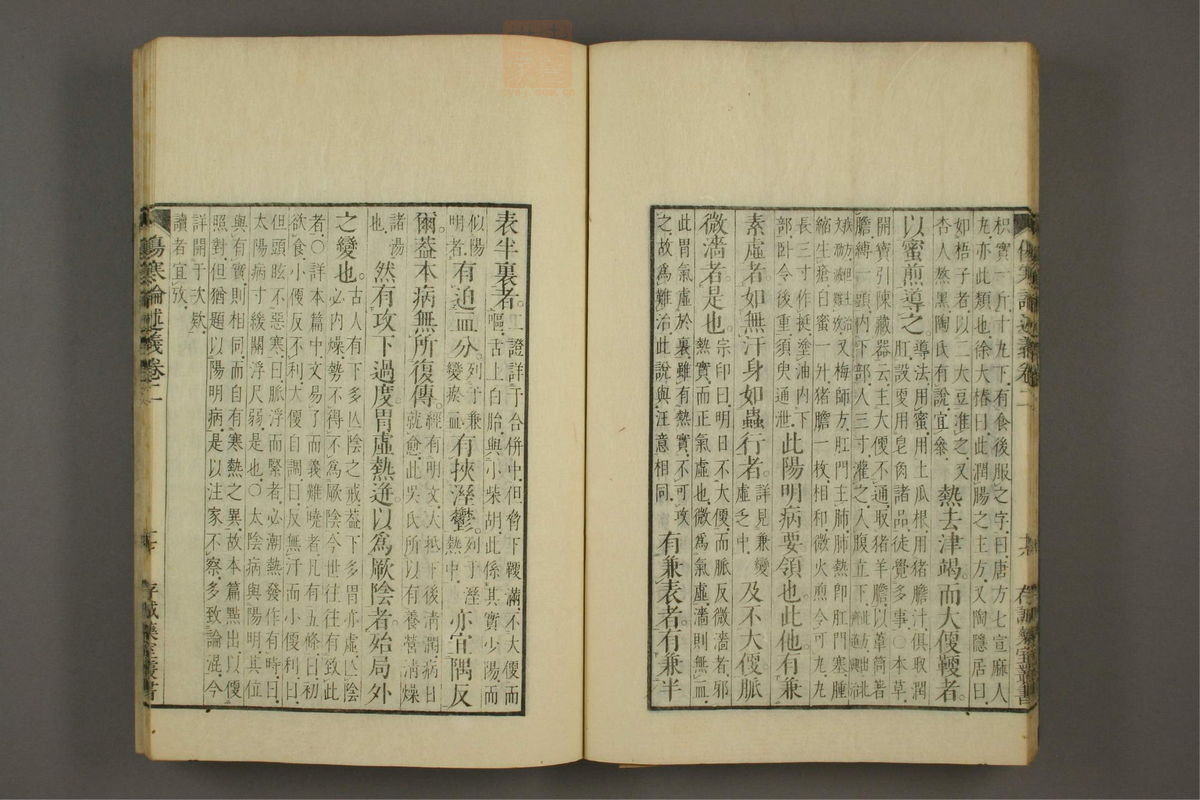 枳實一斤.寸九下.有食後服之字.曰唐方七宣麻人
丸.亦此類也.徐大椿曰.此潤腸之主方.又陶隱居曰.
如梧子者.以二大豆准之.又
杏人熬黑.陶氏有說.宜參.
熱去津竭.而大便鞕者.
以蜜煎導之
導法.用蜜.用土瓜根.用猪膽汁.俱取潤
肛.說要用皂肉諸品.徒覺多事○本草
開寶引陳藏器云.主大便不通.取猪羊膽.以葦筒著
膽.縛一頭.內下部.入三寸灌之.入腹立下
又梅師方.肛門主肺.肺熱即肛門塞腫
縮生瘡.白蜜一升.猪膽一枚.相和.微火煎令可丸
長三寸作挺.塗油內下
部.卧令後重.須臾通泄.
此陽明病要領也.此他有兼
素虛者.如無汗身如蟲行者.
詳見兼變
虛乏中.
及不大便脈
微濇者是也.
宗印曰.明日不大便.而脈反微濇者.邪
熱實.而正氣虛也.微爲氣虛.濇則無血.
此胃氣虛.於裏.雖有熱實.不可攻
之.故爲難治.此說與汪意相同.
有兼表者.有兼半
傷寒論述義卷二
十六
存誠藥室叢書
表半裏者.
證詳于合併中.但脅下鞕滿.不大便而
嘔.舌上白胎.與小柴胡.此係其實少陽而
似陽
明者.
有迫血分.
列于兼
變瘀血.
有挾溼鬱.
列于溼
熱中.
亦宜隅反
爾.蓋本病無所復傳.
經有明文.大抵下後淸潤.病日
就愈.此吳氏所以有養營淸燥
諸湯
也.
然有攻下過度.胃虛熱迸.以爲厥陰者.殆局外
之變也.
古人有下多亡陰之戒.蓋下多胃亦虛.亡陰
必內燥.勢不得不爲厥陰.今世往往有致此
者.○詳本篇中.文易了而義難曉者.凡有五條.曰初
欲食.小便反不利.大便自調.曰反無汗而小便利.曰
但頭眩不惡寒.曰脈浮而緊者.必潮熱發作有時.曰
太陽病寸緩關浮尺弱.是也.○太陰病與陽明.其位
與有實.則相同.而自有寒熱之異.故本篇點出.以便
照對.但猶題以陽明病.是以注家不察.多致論混.今
詳開于次.欵
讀者宜攷.
傷寒論述義卷二
十七
存誠藥室叢書